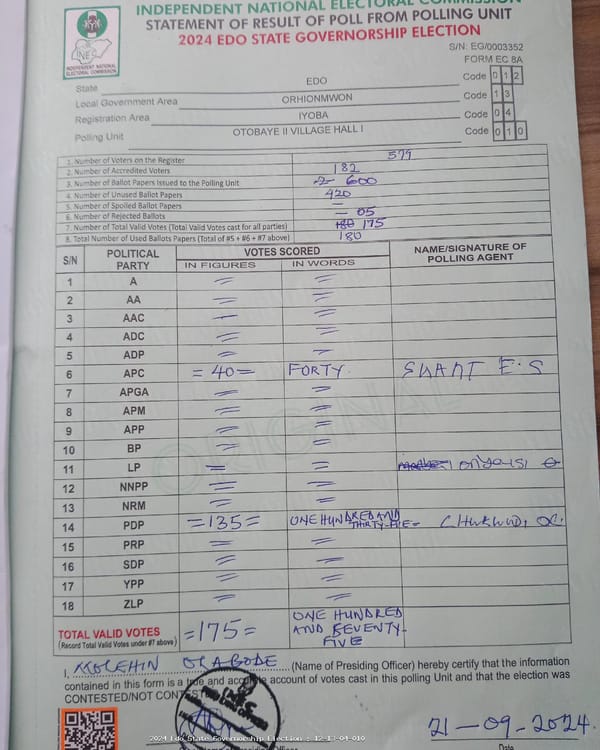 INDEPENDENT NATIONAL ELECTORAL COMMISSION
STATEMENT OF RESULT OF POLL FROM POLLING UNIT
2024 EDO STATE GOVERNORSHIP ELECTION
INEC
INDEPENDENT NATIONAL
ELECTORAL COMMISSION
S/N: EG/0003352
FORM EC 8A
State EDO Code 0 1 2
Local Government Area ORHIONMWON Code 1 3
Registration Area IYOBA Code 0 4
Polling Unit OTOBAYE II VILLAGE HALL I Code 0 1 0
1. Number of Voters on the Register 579
2. Number of Accredited Voters 182
3. Number of Ballot Papers Issued to the Polling Unit 600
4. Number of Unused Ballot Papers 420
5. Number of Spoiled Ballot Papers —
6. Number of Rejected Ballots — 05
7. Number of Total Valid Votes (Total Valid Votes cast for all parties) 180 175
8. Total Number of Used Ballots Papers (Total of #5 + #6 + #7 above) 180
S/N POLITICAL PARTY VOTES SCORED NAME/SIGNATURE OF POLLING AGENT
IN FIGURES IN WORDS
1 A = =
2 AA = =
3 AAC = =
4 ADC = =
5 ADP = =
6 APC =40= FORTY
7 APGA = =
8 APM = =
9 APP = =
10 BP = =
11 LP = =
12 NNPP = =
13 NRM = =
14 PDP =135= ONE HUNDRED AND THIRTY-FIVE=
15 PRP = =
16 SDP = =
17 YPP = =
18 ZLP = =
ORIGINAL
TOTAL VALID VOTES =175= ONE HUNDRED AND SEVENTY-FIVE
(Record Total Valid Votes under #7 above)
I, OLABODE (Name of Presiding Officer) hereby certify that the information
contained in this form is a true and accurate account of votes cast in this polling Unit and that the election was
CONTESTED/NOT CONTESTED
21-09-2024
2024 Edo State Governorship Election : 12-13-04-010
Date